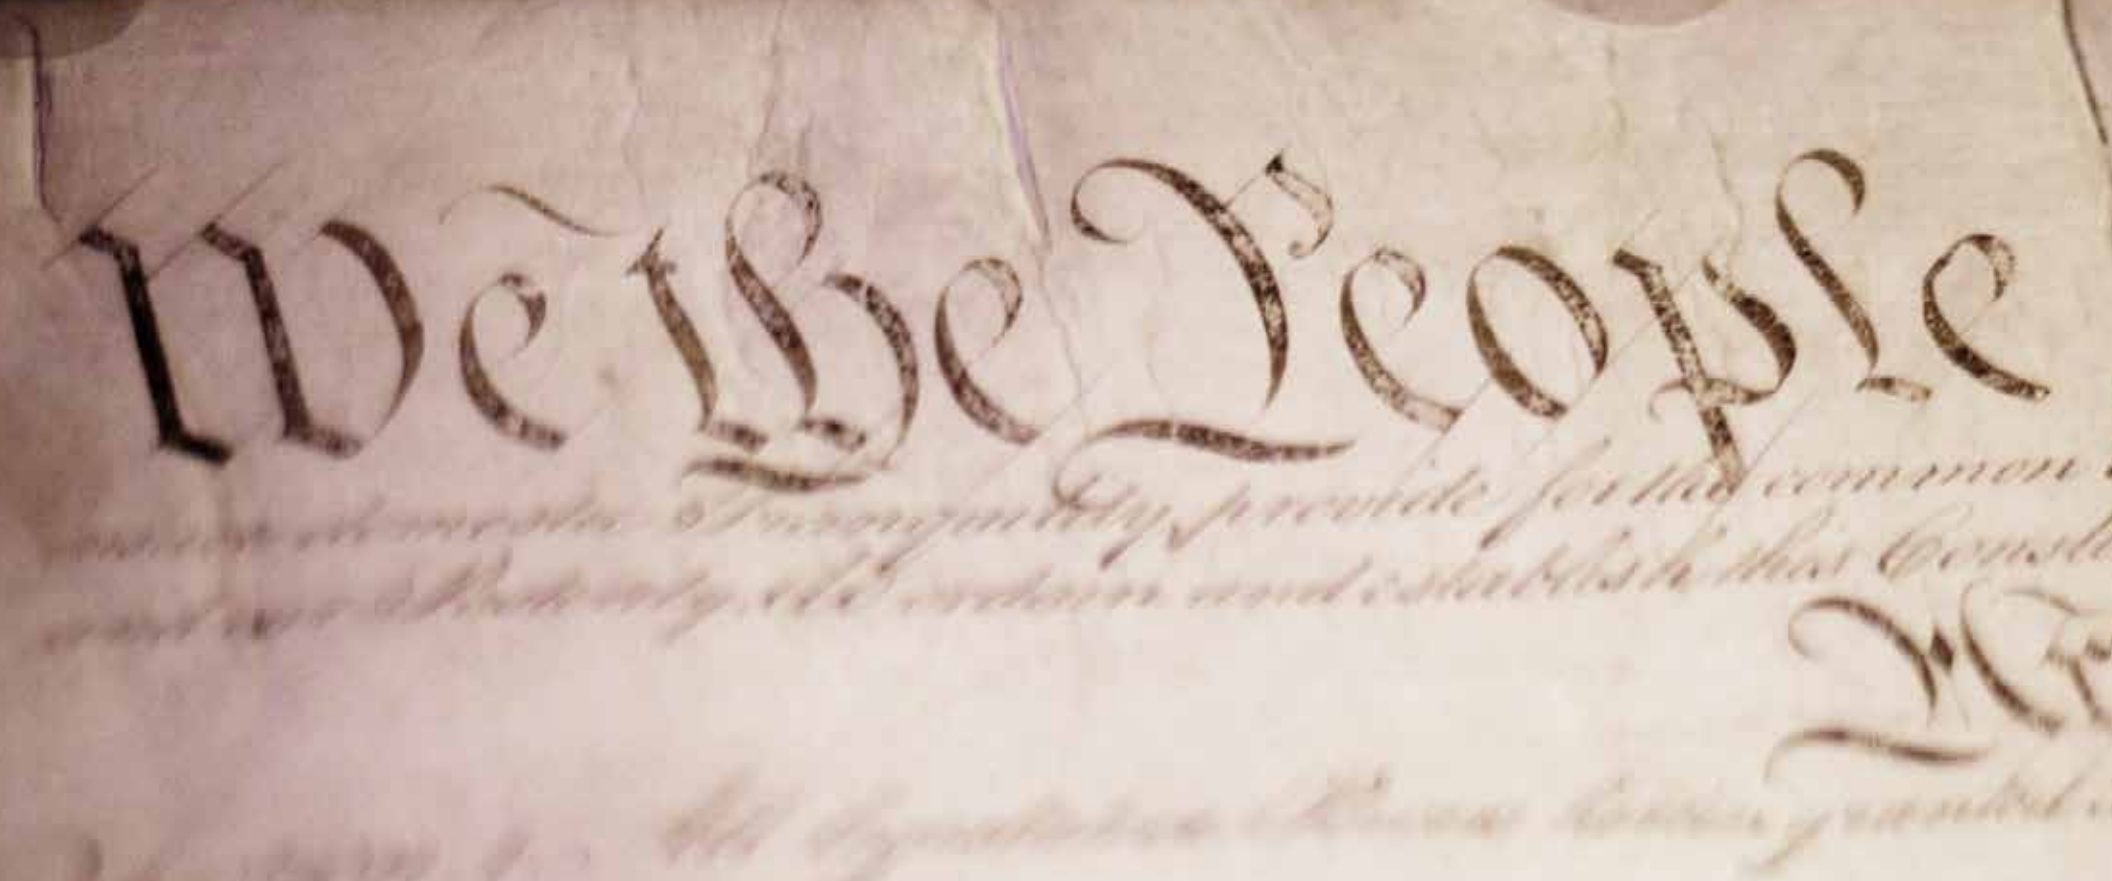 We the People
insure domestic Tranquility, provide for the common
and our Posterity, do ordain and establish this Consti
Ar
All legislative Powers herein granted